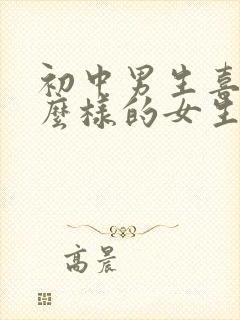 初中男生喜
麼樣的女生
高晨